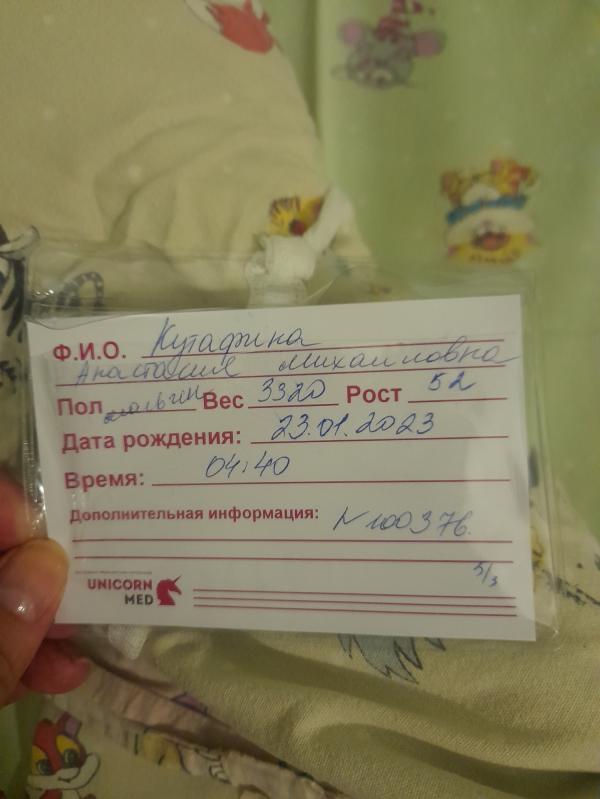 Ф.И.О. Кутафина
Анастасия Михайловна
Пол мальчик Вес 3320 Рост 52
Дата рождения: 23.01.2023
Время: 04:40
Дополнительная информация: N 100376.
5/3
UNICORN
MED